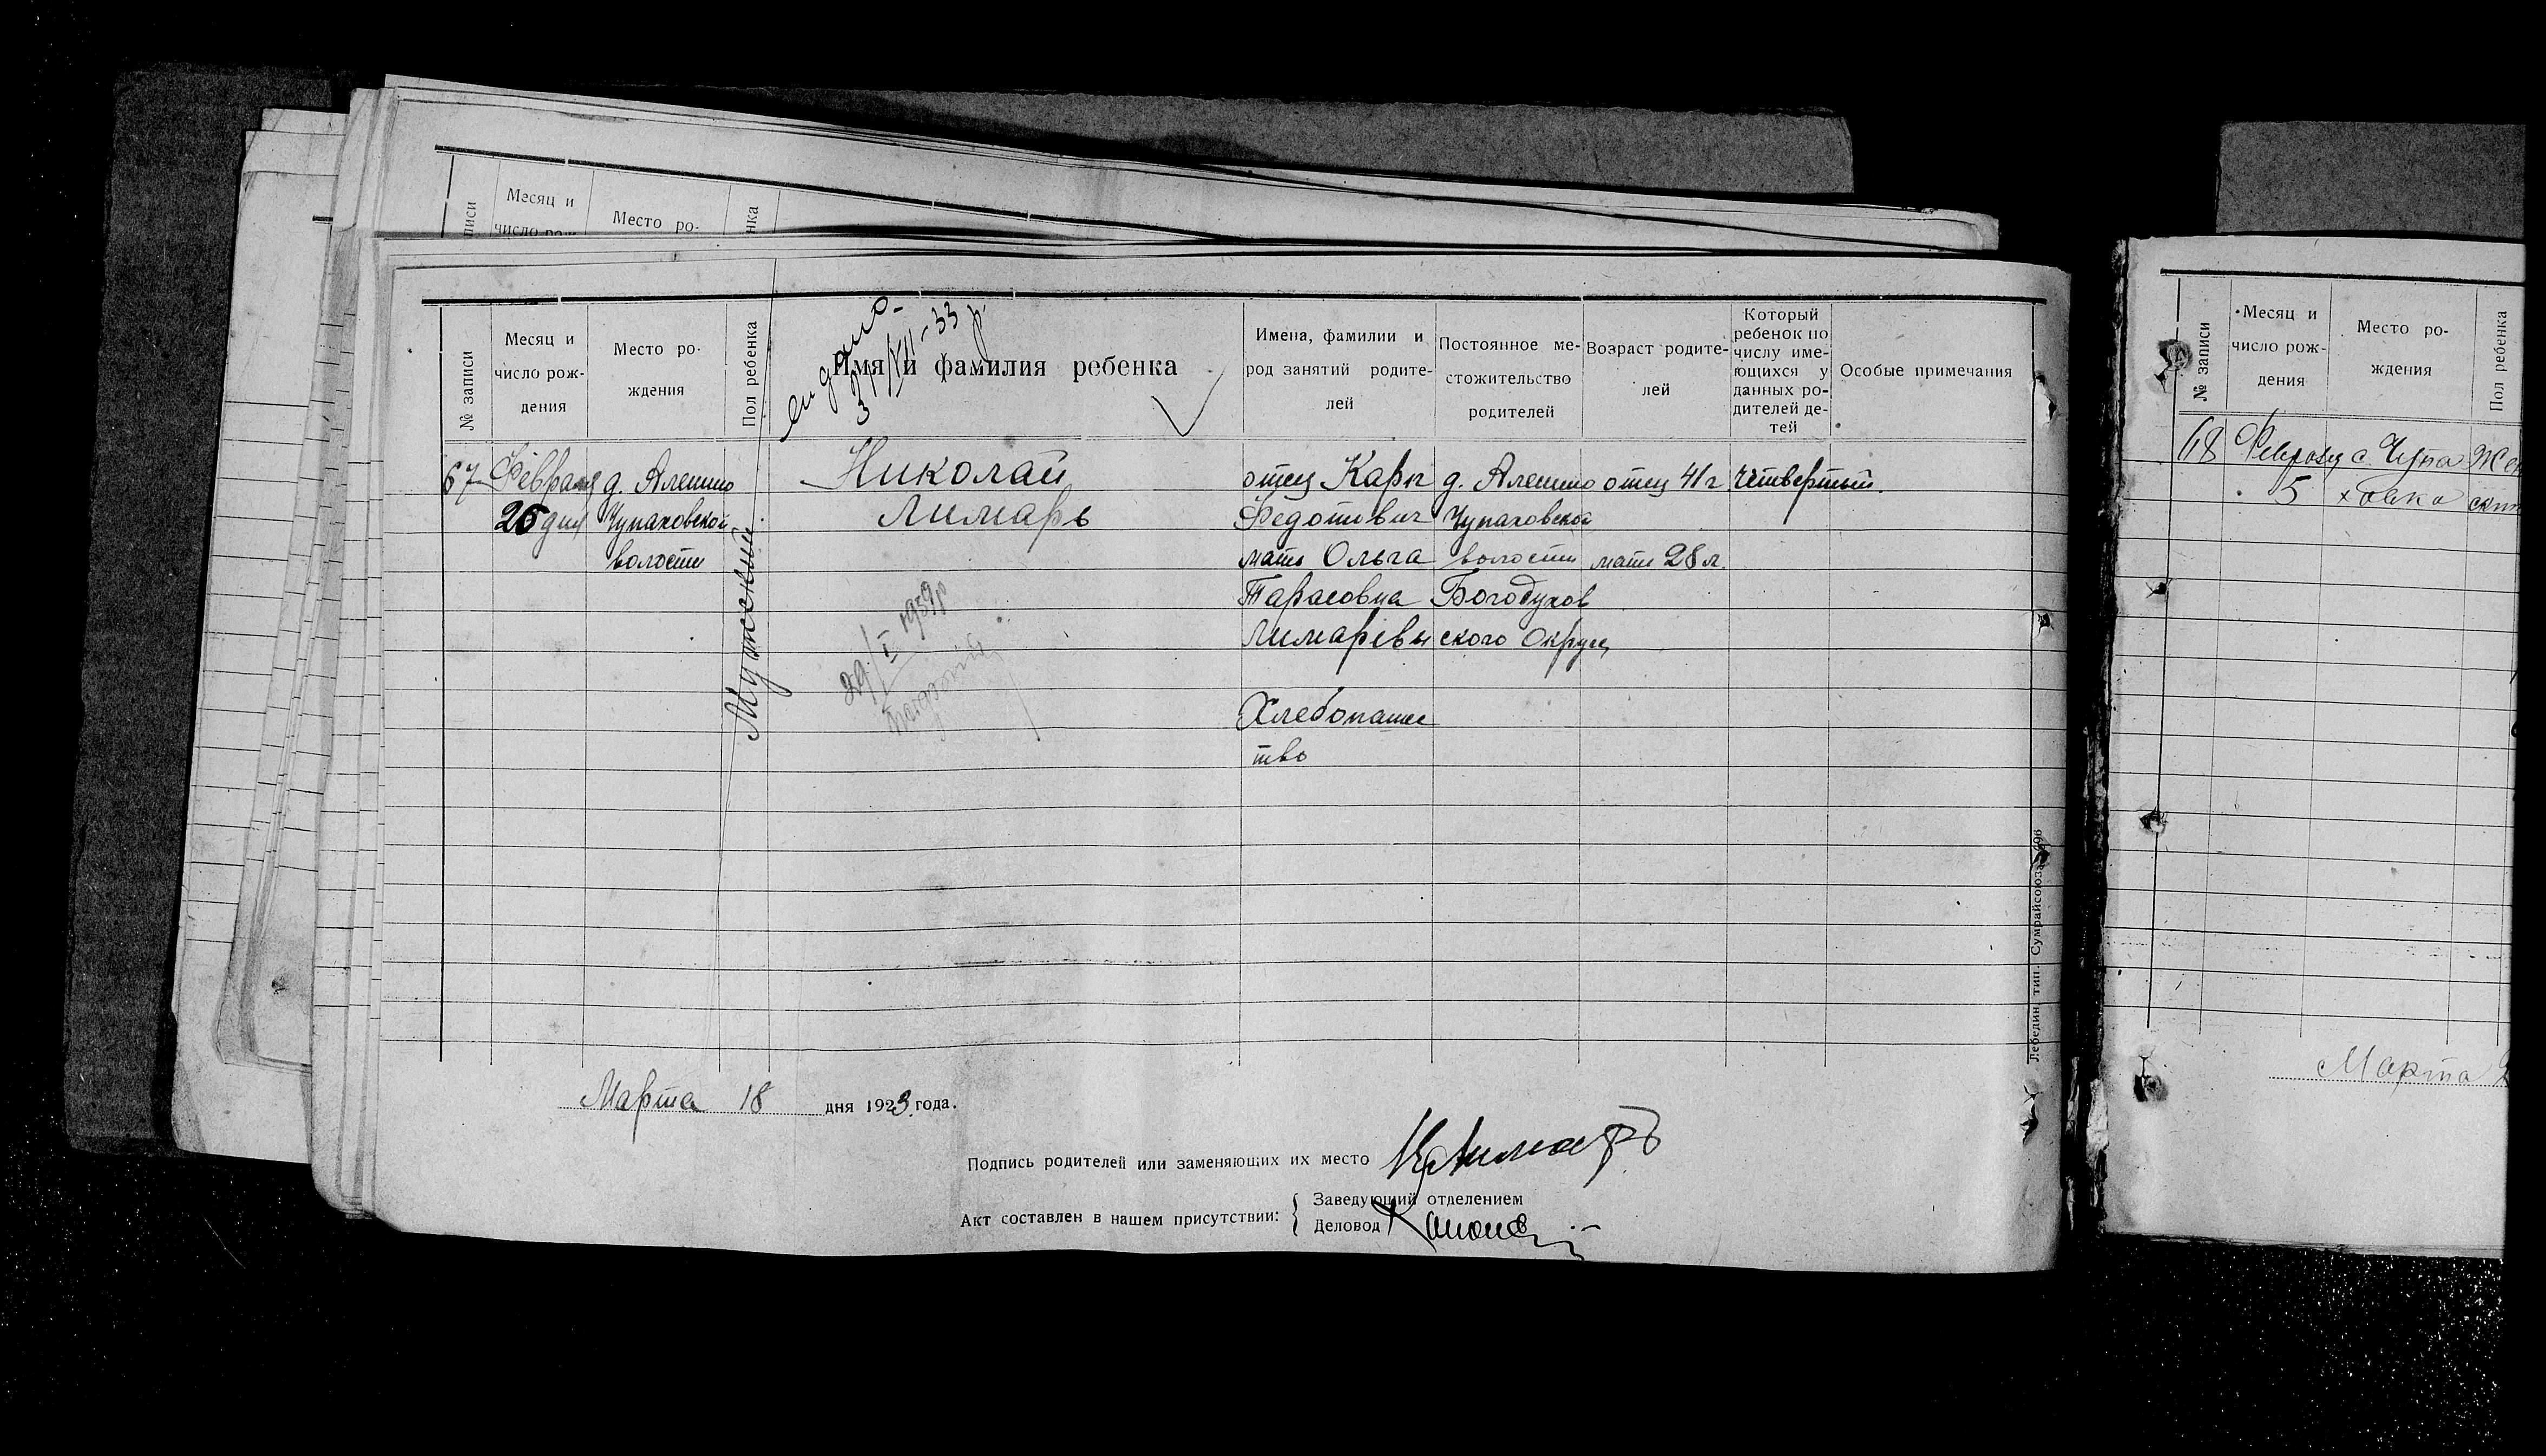 Месяц и
число рож-
Место ро-
№ записи
Месяц и
число рож-
дения
Место ро-
ждения
Пол ребенка
Имя и фамилия ребенка
Имена, фамилии и
род занятий родите-
лей
Постоянное ме-
стожительство
родителей
Возраст родите-
лей
Который
ребенок по
числу име-
ющихся у
данных ро-
дителей де-
тей
Особые примечания
67
Февраля
26 дня
д. Алешно
Чупаховской
волости
Мужский
Николай
Лимарь
отец Карп
Федотович
мать Ольга
Тарасовна
Лимаревы
Хлебопашес
тво
д. Алешно
Чупаховской
волости
Богодухов
ского Округа
отец 41 г
мать 28 л.
Четвертый.
29/I 1939р
Марта 18 дня 1923 года.
Подпись родителей или заменяющих их место К Лимарь
Акт составлен в нашем присутствии:
Заведующий отделением
Деловод
Лебедин, тип. Сумрайсоюза
№ записи
Месяц и
число рож-
дения
Место ро-
ждения
Пол ребенка
68
Февраля
5
с. Чупа
ховка
Жен
ский
Марта